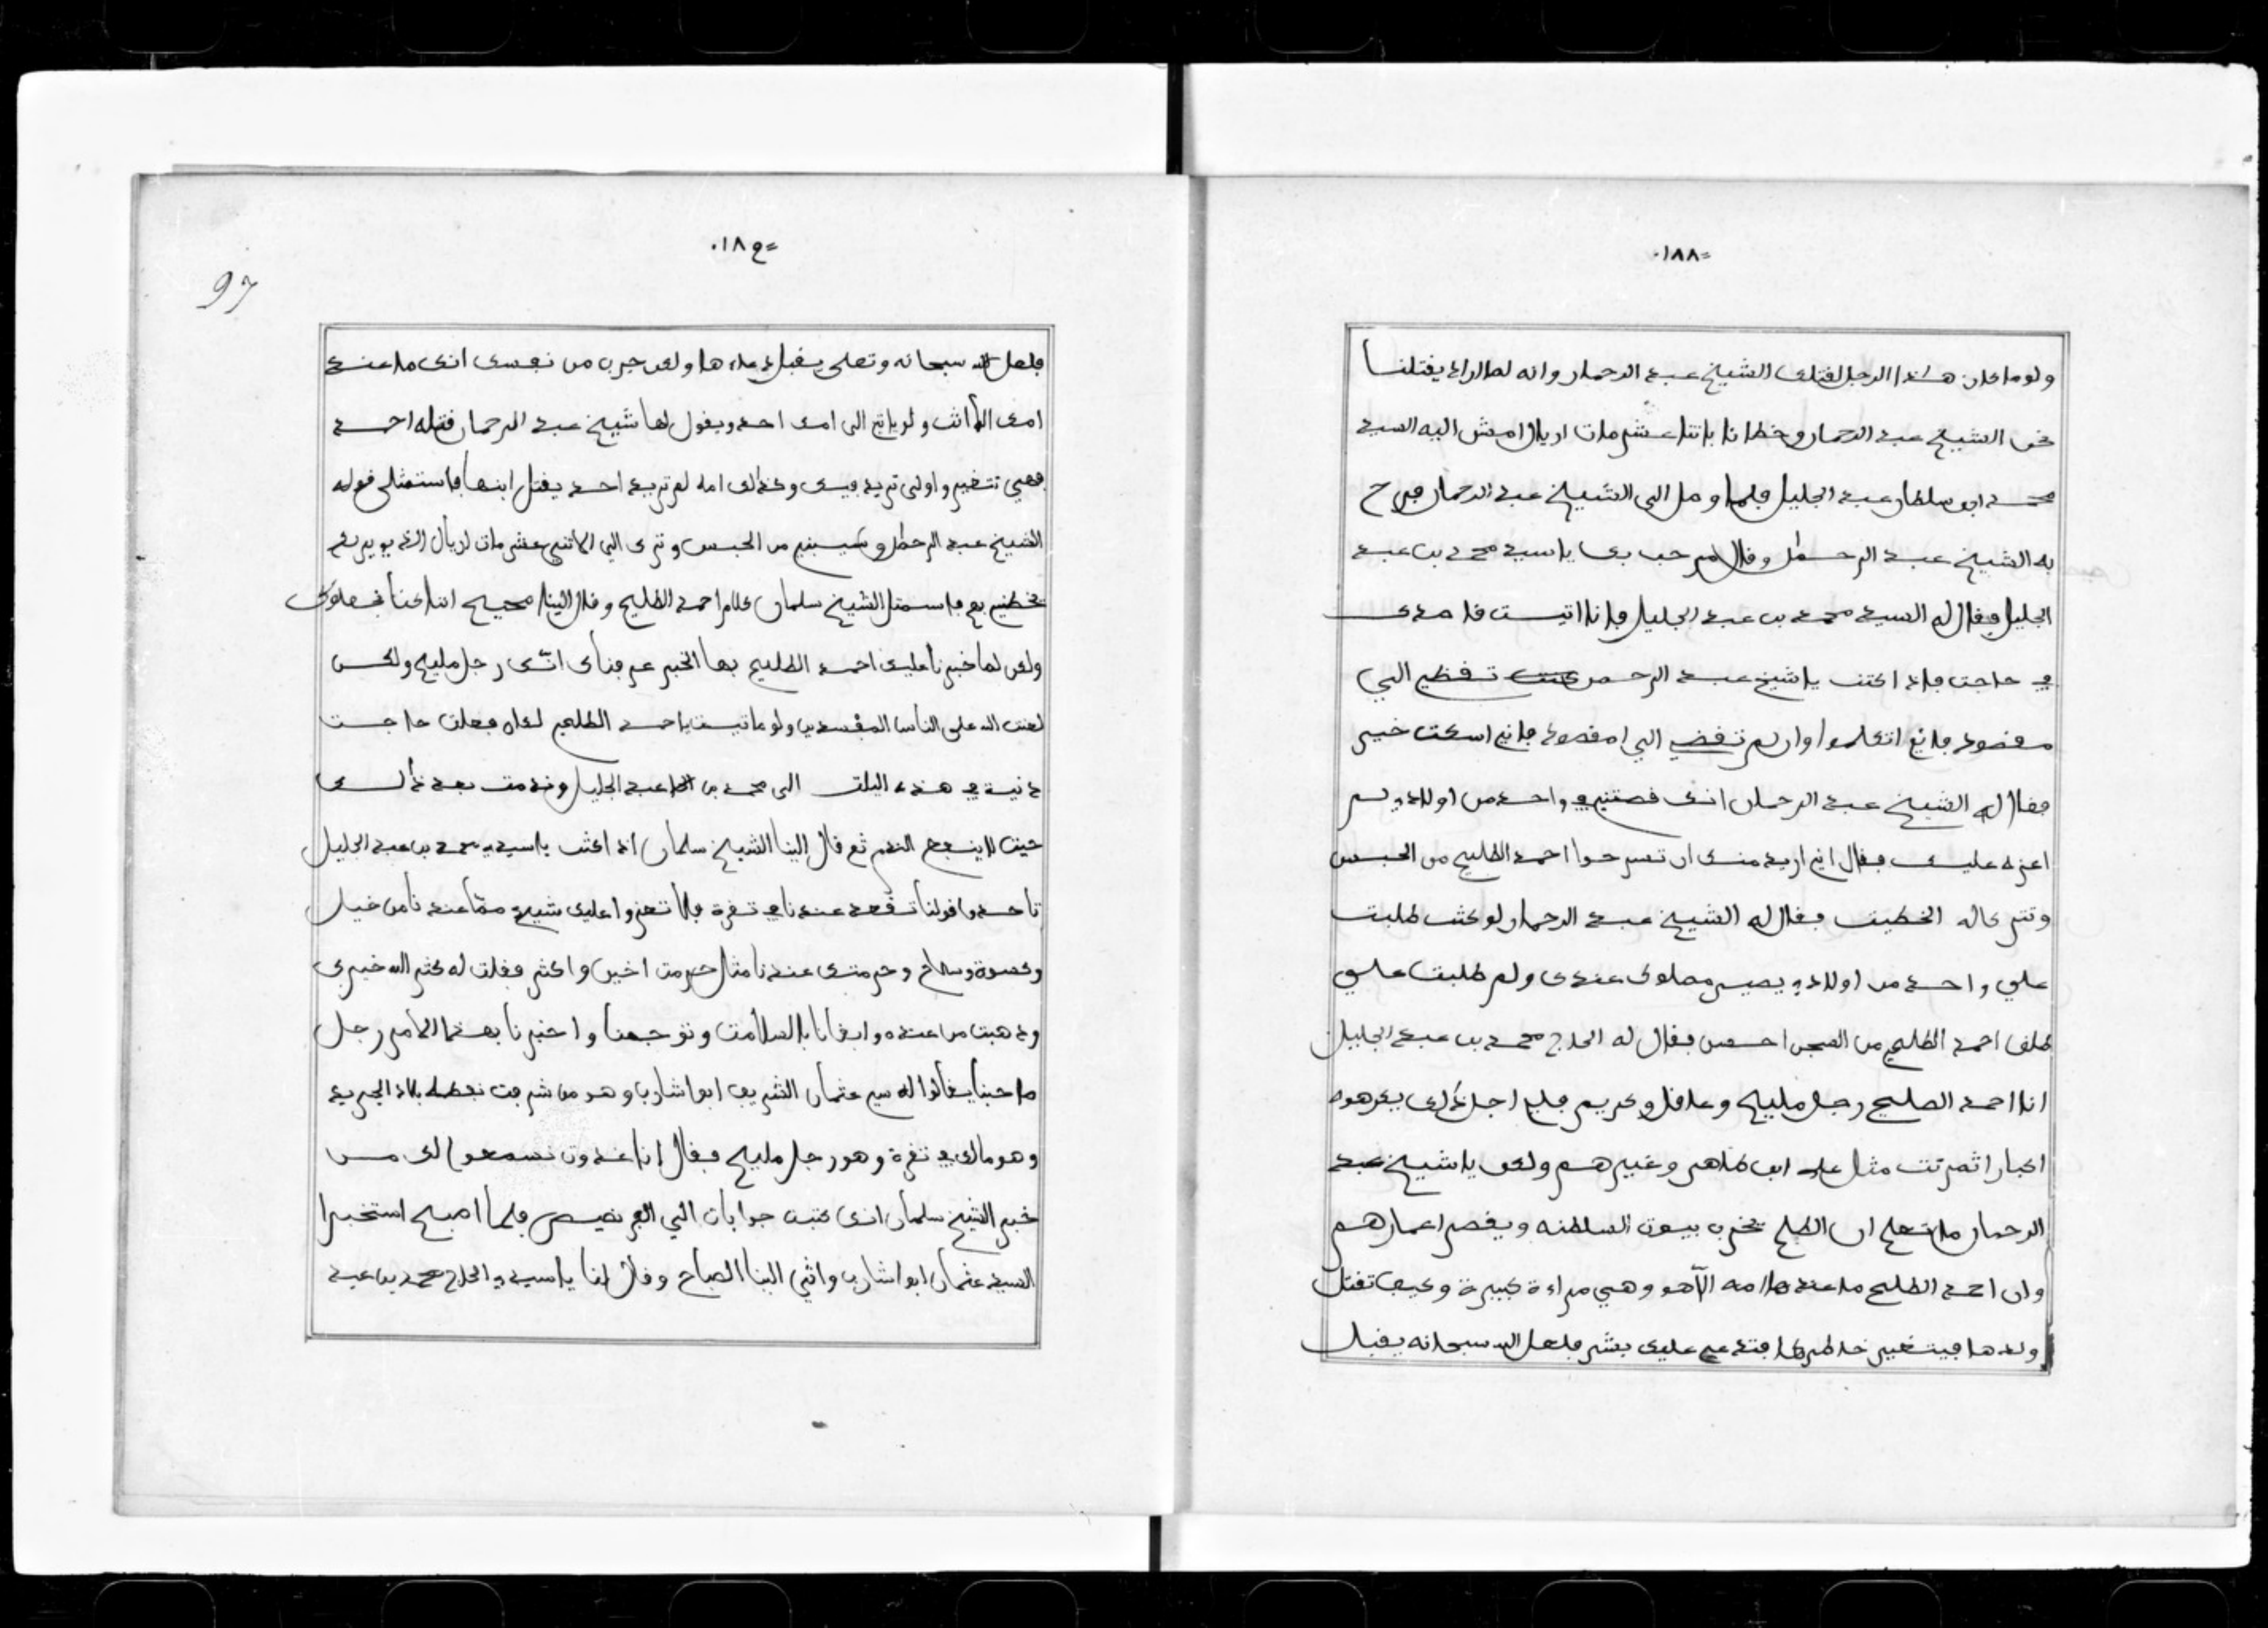 ٠١٨٨=
ولو ما كان هاذا الرجل لقتلك الشيخ عبد الرحمان وانه لطال راد يقتلنا
نحن الشيخ عبد الرحمان وخطانا باتنا عشر مات اريال امش اليه السيد
محمد ابن سلطان عبد الجليل فلما وصل الى الشيخ عبد الرحمان فرح
به الشيخ عبد الرحمان وقال مرحب بك يا سيد محمد بن عبد
الجليل فقال له السيد محمد بن عبد الجليل فانا اتيت قاصدك
في حاجت فاذا كنت يا شيخ عبد الرحمن تقظي الي
مقصود فاني اتكلموا وان لم تقضي الي مقصود فاني اسكت خير
فقال له الشيخ عبد الرحمان انك قصتني في واحد من اولادي لم
اعزه عليك فقال اني اريد منك ان تسرحوا احمد الظليح من الحبس
وتترك له الخطيت فقال له الشيخ عبد الرحمان لو كنت طلبت
علي واحد من اولادي يصير مملوك عندك ولم طلبت علي
طلق احمد الظليح من السجن احسن فقال له الحاج محمد بن عبد الجليل
انا احمد الصليح رجل مليح وعاقل وكريم فلي اجل ذلك يكرهوه
اكبار اثمرتت مثل علي ابن طاهر وغيرهم ولكن يا شيخ عبد
الرحمان ما تعلم ان الظلم يخرب بيوت السلطنه ويقصر اعمارهم
وان احمد الظليح ما عندها امه الا هو وهي مراءة كبيرة وكيف تقتل
ولدها فيتغير خاطرها فتدعي عليك بشر فلعل الله سبحانه يقبل
=١٨٩٠
97
فلعل الله سبحانه وتعلى يقبل دعاءها ولكن جرب من نفسك انك ما عندك
امك الا انت ولو ياتي الى امك احد ويقول لها شيخ عبد الرحمان قتله احد
فهي تتغير واولى تريد فيك وكذالك امه لم تريد احد يقتل ابنها فاستمثل قوله
الشيخ عبد الرحمان وسيبني من الحبس وترك الي الاتني عشر مات اريال الذي يريد
يخطيني بهم فاسمتل الشيخ سلمان كلام احمد الظليح وقال الينا صحيح اننا كنا نمسلوك
ولكن لما خبرنا عليك احمد الظليح بها الخبر عرفناك انك رجل مليح ولكن
لعنت الله على الناس المفسدين ولو ما تيست يا حمد الظليح لكان فعلت حاجت
دنية في هذه اليلت الى محمد بن عبد الجليل وندمت بعد ذالك
حيث لا ينفع الندم ثم قال الينا الشيخ سلمان اذا كنت يا سيدي محمد بن عبد الجليل
تاحد ما قولنا تقعد عندنا في تقرة فلا تعزوا عليك شيء مما عندنا من خيل
وكسوة وسلاح وحرمتك عندنا مثل حرمت اخي واكثر فقلت له كثر الله خيرك
وذهبت من عنده وابقانا بالسلامت وتوجهنا واخبرنا بهذا الامر رجل
صاحبنا يقالوا له سي عثمان الشريف ابوا شارب وهو من شرفت نفطه بلاد الجريد
وهو مالك في تقرة وهو رجل مليح فقال انا غدون نسمعوا لك من
خبر الشيخ سلمان انك كتبت جوابات الي الفرنصيص فلما اصبح استخبرا
السيد عثمان ابوا شارب واتي الينا الصباح وقال لنا يا سيدي الحاج محمد بن عبد